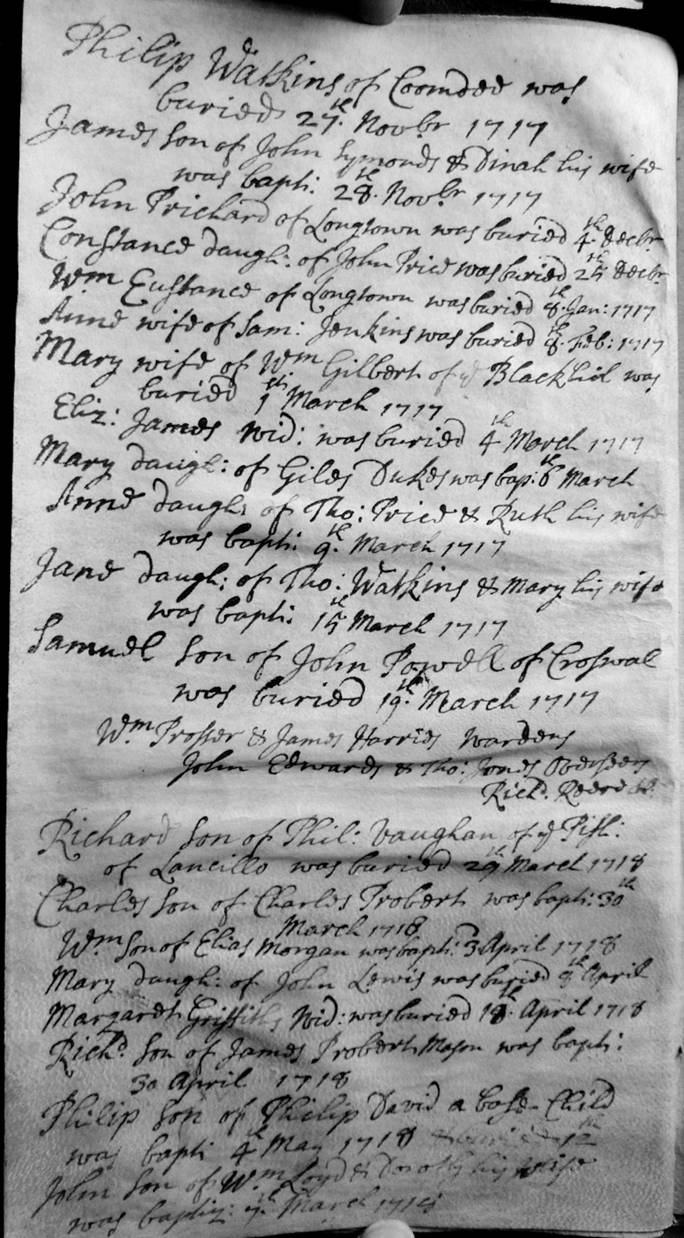 Philip Watkins of Coomdee was
buried 27th. Novbr 1717
James Son of John Symonds & Dinah his wife
was bapti: 28th. Novbr 1717
John Prichard of Longtown was buried 4th. Decbr
Constance daugh: of John Price was buried 25th Decbr
Wm Eustance of Longtown was buried 8th. Jan: 1717
Anne wife of Sam: Jenkins was buried 8th. Feb: 1717
Mary wife of Wm Gilbert of ye Blackhill was
buried 1st March 1717
Eliz: James Wid: was buried 4th March 1717
Mary daugh: of Giles Dukes was bap: 6th March
Anne daugh: of Tho: Price & Ruth his wife
was bapti: 9th. March 1717
Jane daugh: of Tho: Watkins & Mary his wife
was bapti: 15th March 1717
Samuel Son of John Powell of Croswal
was buried 19th. March 1717
Wm Prosser & James Harries wardens
John Edwards & Tho: Jones Overseers
Richd. Reere
Richard Son of Phil: Vaughan of ye Pish:
of Lancillo was buried 29th March 1718
Charles Son of Charles Probert was bapti: 30th
March 1718
Wm Son of Elias Morgan was bapti: 3 April 1718
Mary daugh: of John Lewis was buried 9th April
Margaret Griffiths Wid: was buried 18th. April 1718
Richd Son of James Probert Mason was bapti:
30 April 1718
Philip Son of Philip David a base Child
was bapti 4th May 1718 & buried 12th
John Son of Wm Loyd & Dorothy his wife
was baptiz: 7th. March 1718